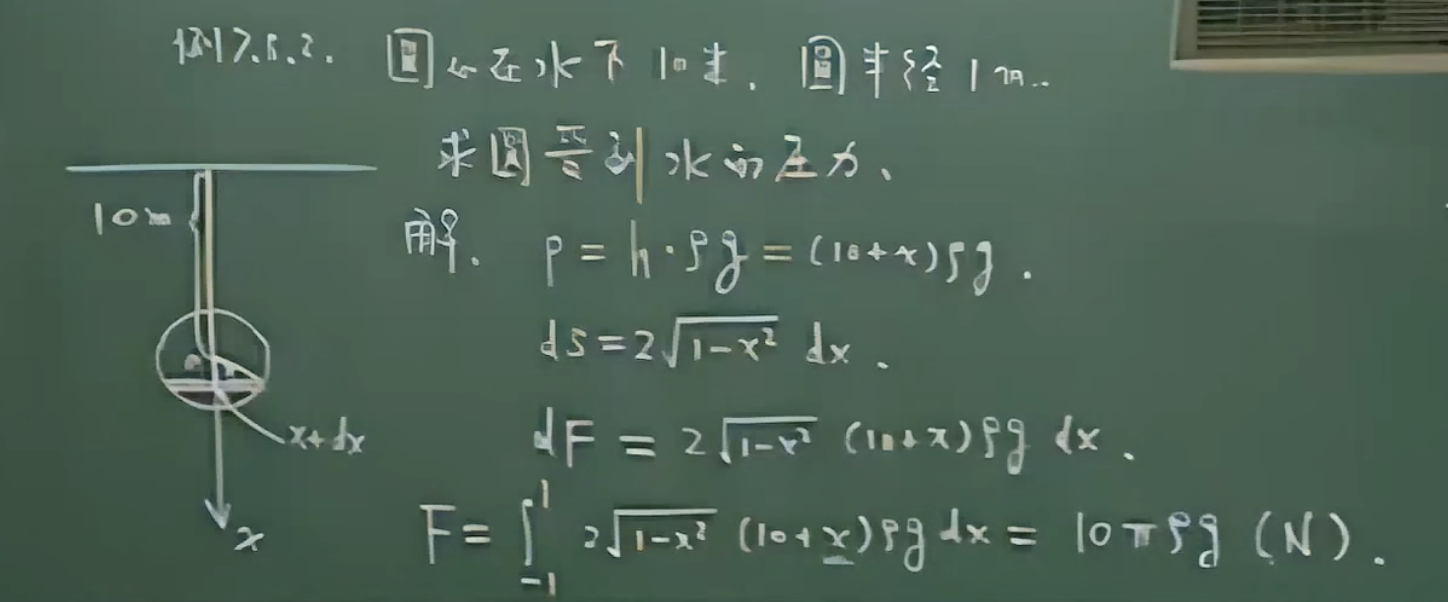 例7.5.2. 圆心在水下10米. 圆半径1m.
求圆受到水的压力.
10m
解. p = h·ρg = (10+x)ρg.
dS = 2√(1-x²) dx.
x+dx
dF = 2√(1-x²) (10+x)ρg dx.
F = ∫₋₁¹ 2√(1-x²) (10+x)ρg dx = 10πρg (N).
x